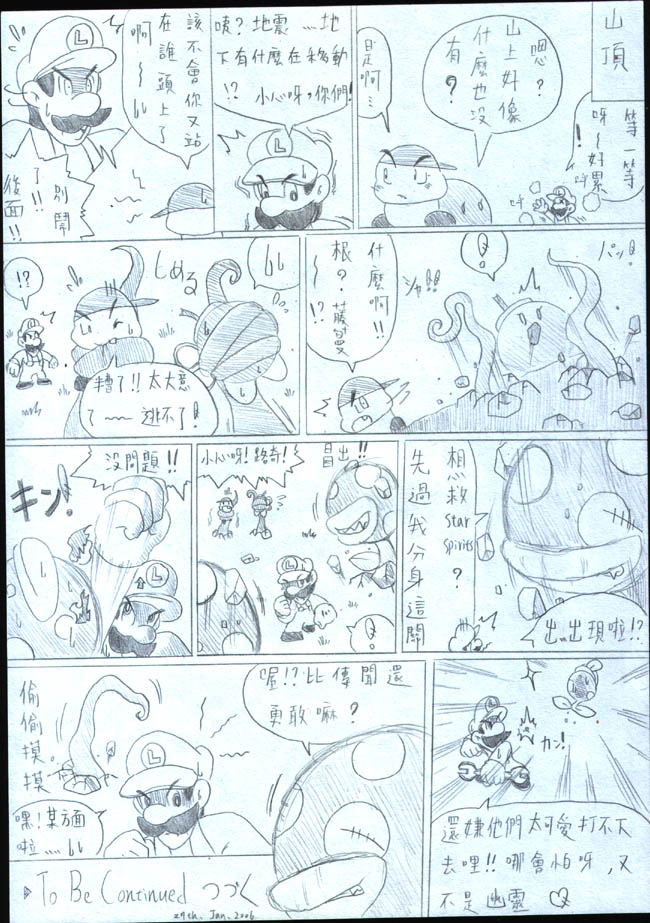 山頂
等一等
呀～好累
!
呼
呼
嗯？
山上好像
什麼也沒
有？
是啊…
咦？地震…地
下有什麼在移動
!?
小心呀，你們!
L
該不會你又站
在誰頭上了
啊～
L
別鬧
了!!
後面!!
パッ!
シャ!!
什麼啊!!
根？藤蔓
～!?
しめる
糟了!!太大意
了～～逃不了!
!?
想救
Star
Spirits？
先過我分身這關
出…出現啦!?
冒出!!
小心呀!路奇!
L
沒問題!!
キン!
L
カン!
還嫌他們太可愛打不下
去哩!!哪會怕呀，又
不是幽靈
喔!?比傳聞還
勇敢嘛？
偷偷摸摸
L
嘿!某方面
啦……
To Be Continued つづく
29th. Jan. 2006